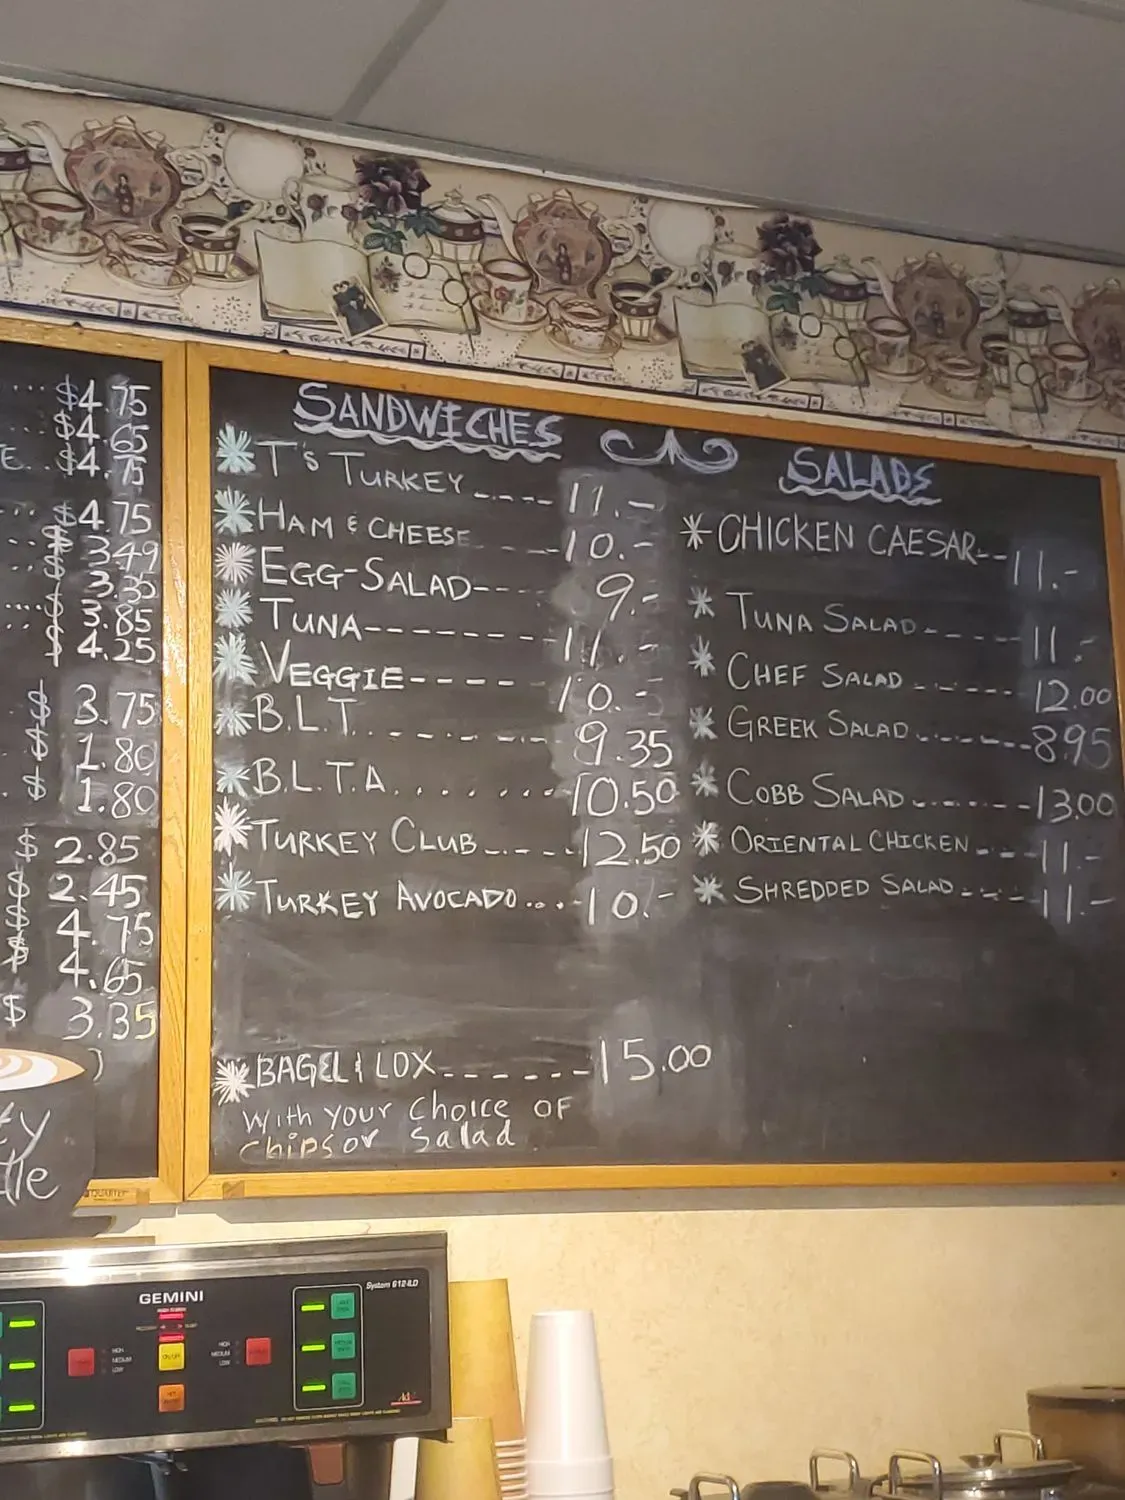 $4.75
$4.65
E.. $4.75
$4.75
$ 3.49
$ 3.35
$ 3.85
$ 4.25
$ 3.75
$ 1.80
$ 1.80
$ 2.85
$ 2.45
$ 4.75
$ 4.65
$ 3.35
SANDWICHES
T's TURKEY ---- 11.-
HAM & CHEESE --- 10.-
EGG-SALAD --- 9.-
TUNA -------- 11.-
VEGGIE ---- 10.-
B.L.T. ------- 9.35
B.L.T.A........ 10.50
TURKEY CLUB ----- 12.50
TURKEY AVOCADO ...- 10.-
BAGEL & LOX ------ 15.00
With your choice OF
chips or salad
SALADS
CHICKEN CAESAR -- 11.-
TUNA SALAD ----- 11.-
CHEF SALAD ------ 12.00
GREEK SALAD ------- 8.95
COBB SALAD ------- 13.00
ORIENTAL CHICKEN --- 11.-
SHREDDED SALAD ---- 11.-
QUARTET
GEMINI
System 612ILD
HIGH
MEDIUM
LOW
HIGH
MEDIUM
LOW
ON/OFF